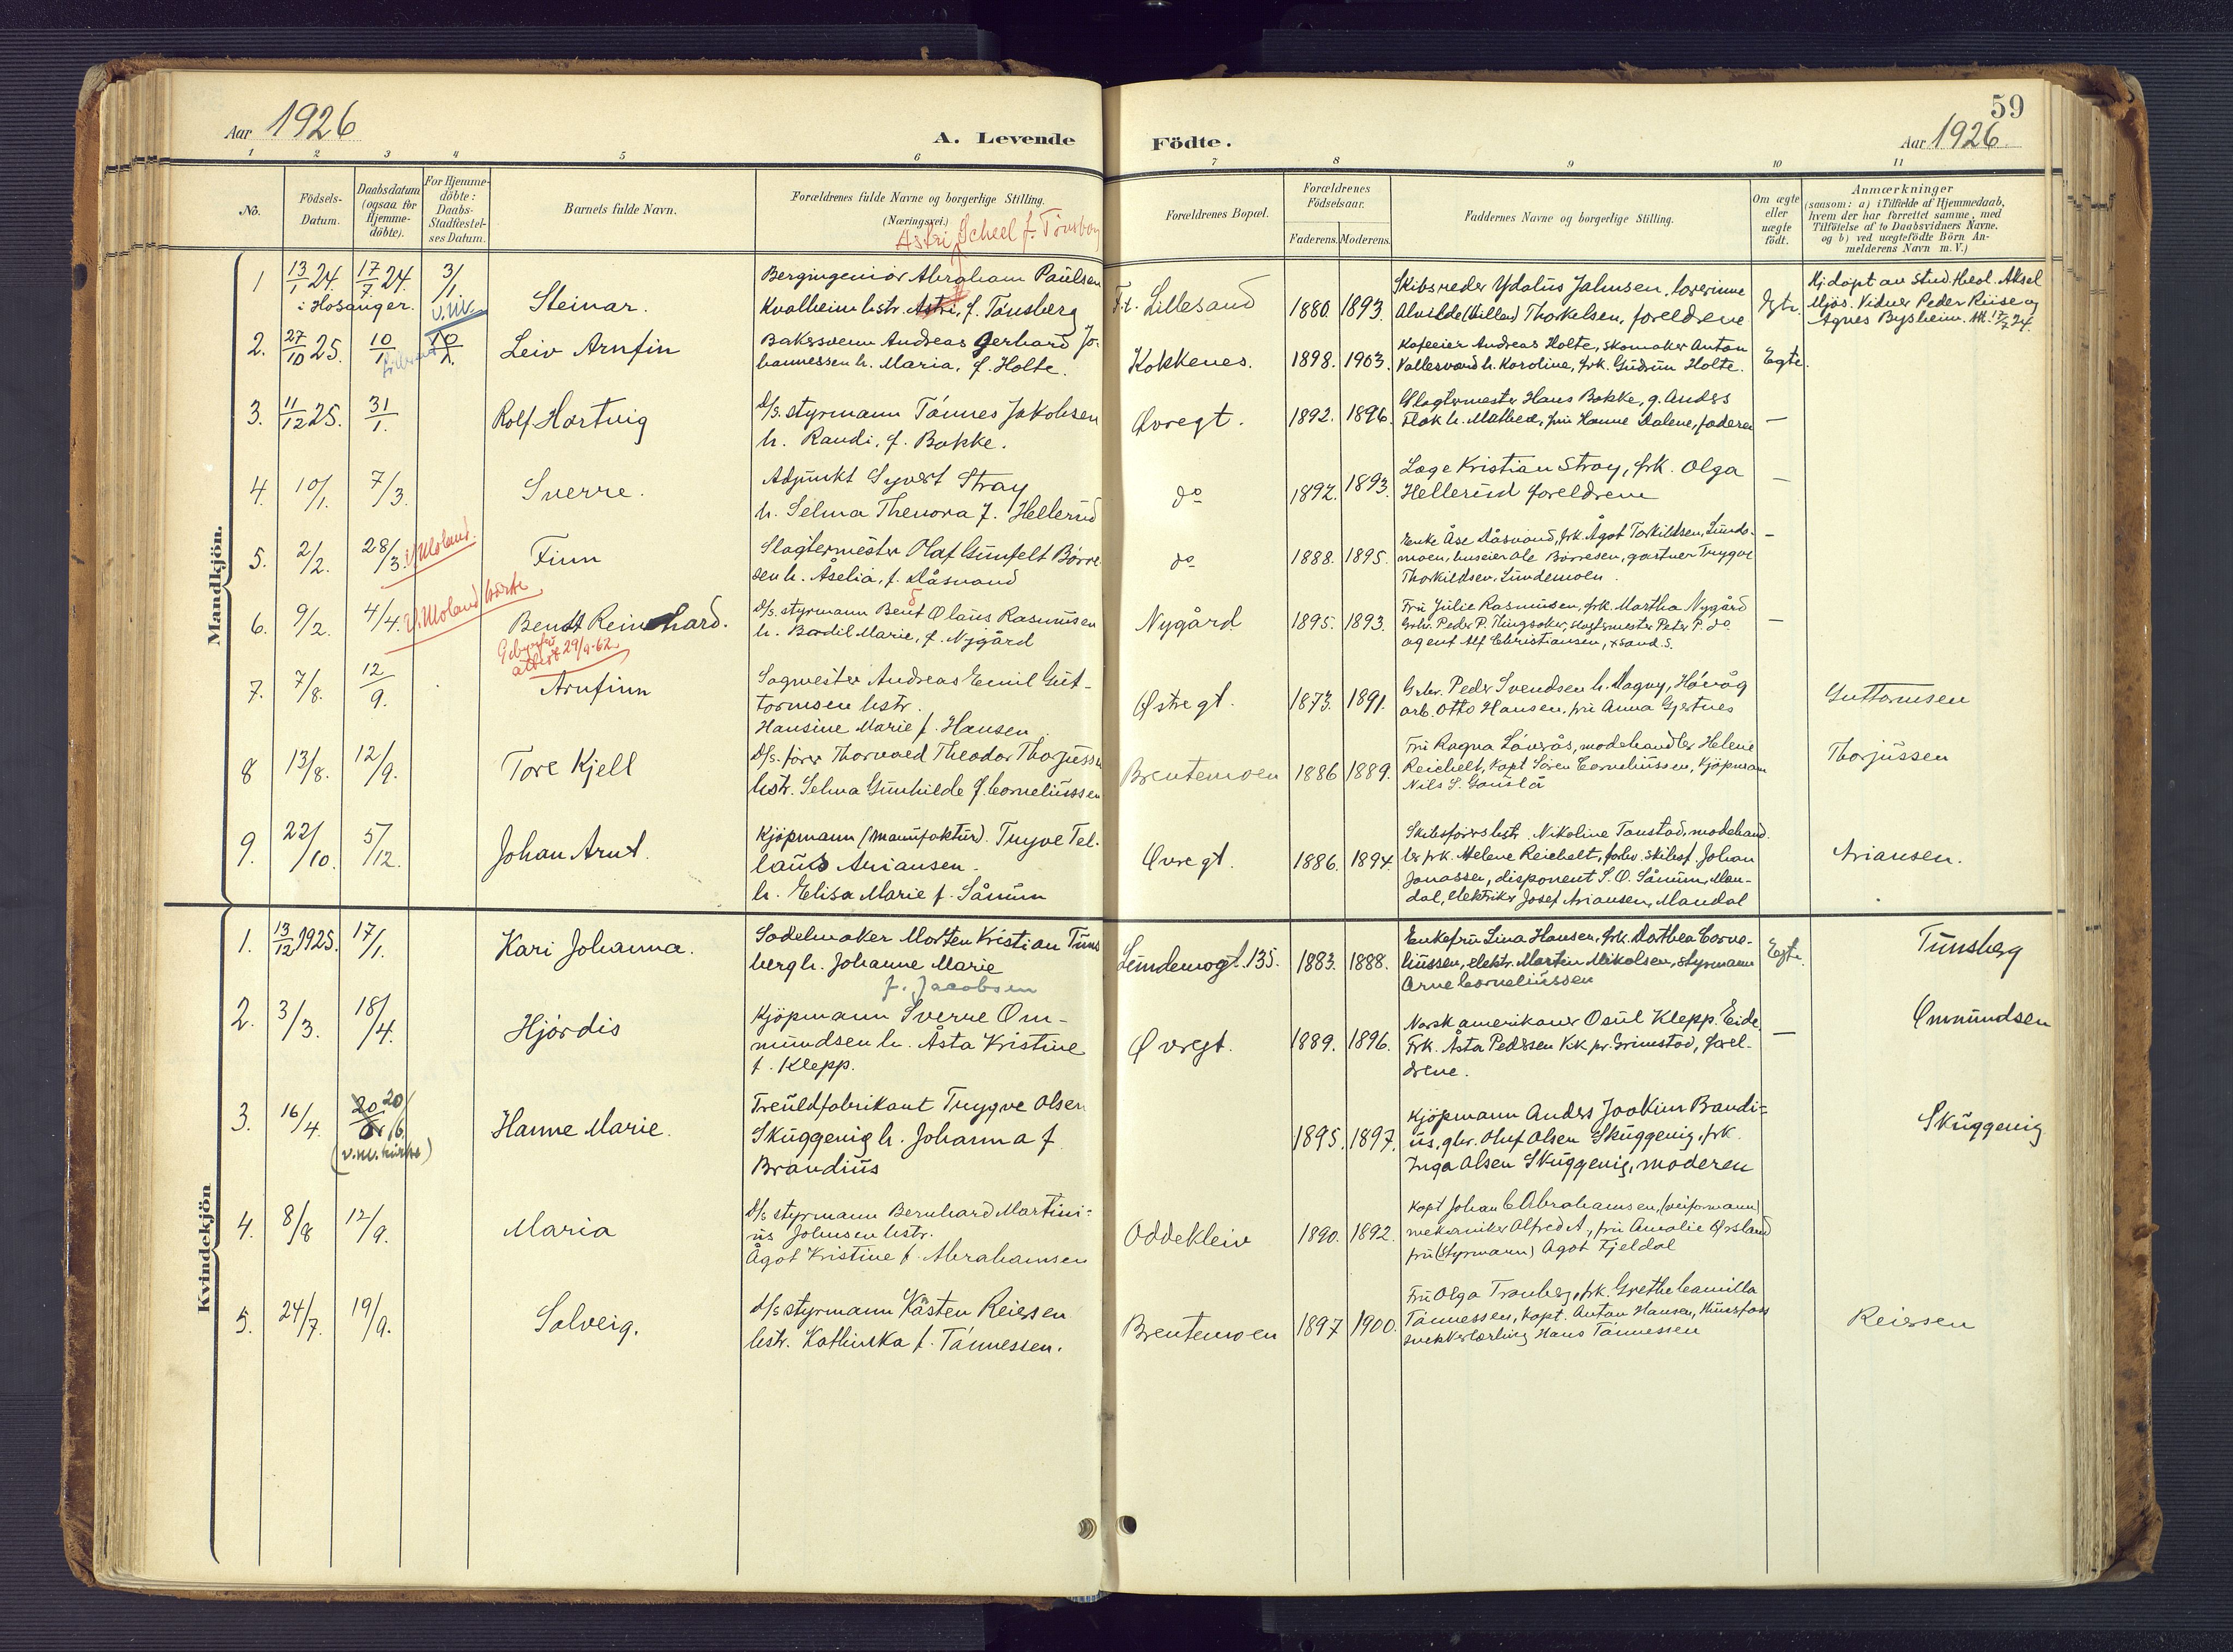 Aar 1926
A. Levende
Födte.
59
Aar 1926
1 2 3 4 5 6 7 8 9 10 11
No.
Födsels-
Datum.
Daabsdatum
(ogsaa for
Hjemme-
döbte).
For Hjemme-
döbte:
Daabs-
Stadfæstel-
ses Datum.
Barnets fulde Navn.
Forældrenes fulde Navne og borgerlige Stilling.
(Næringsvei.)
Astri Scheel f. Tönsberg
Forældrenes Bopæl.
Forældrenes
Födselsaar.
Faderens. Moderens.
Faddernes Navne og borgerlige Stilling.
Om ægte
eller
uægte
født.
Anmærkninger
(saasom: a) i Tilfælde af Hjemmedaab,
hvem der har forrettet samme, med
Tilföielse af to Daabsvidners Navne.
og b) ved uægtefödte Börn An-
melderens Navn m. V.)
Mandkjön.
1 13/1 24. 17/7 24. 3/1
i Hosanger.
Steinar.
Bergingeniör Abraham Paulsen
Kvalheim hstr. Astri, f. Tönsberg
F.t. Lillesand
1880. 1893.
Skibsreder Ydalus Jahnsen, lærerinne
Alvilde (Willa) Thorkelsen, foreldrene
Egte.
Hj.døpt av stud. theol. Aksel
Mjøs. Vidner Peder Riise og
Agnes Bysheim. 17/7 24.
2. 27/10 25. 10/1 10/1.
Leiv Arnfin
Bakersvenn Andreas Gerhard Jo-
hannessen h. Maria, f. Holte.
Kokkenes.
1898. 1903.
Kafeeier Andreas Holte, skomaker Anton
Vallesvand h. Karoline, frk. Gudrun Holte.
Egte.
3. 11/12 25. 31/1.
Rolf Hartvig
D/s. styrmann Tönnes Jakobsen
h. Randi, f. Bakke.
Øvregt.
1892. 1896.
Slagtermester Hans Bakke, g. Anders
Flak h. Mathea, fru Hanne Dalene, faderen
—
4. 10/1. 7/3.
Sverre.
Adjunkt Syvert Stray
h. Selma Thenora f. Hellerud
do
1892. 1893.
Læge Kristian Stray, frk. Olga
Hellerud foreldrene
—
5. 2/2. 28/3. i V. Moland.
Finn
Slagtermester Olaf Gunfelt Børre-
sen h. Åselia, f. Dåsvand
do
1888. 1895.
Enke Åse Dåsvand, frk. Ågot Torkildsen, Lunde-
moen, huseier Ole Børresen, gartner Trygve
Thorkildsen, Lundemoen.
—
6. 9/2. 4/4. V. Moland kirke
Bendt Reinhard.
D/s. styrmann Bent Olaus Rasmussen
d
h. Bodil Marie, f. Nygård
Nygård
1895. 1893.
Fru Julie Rasmussen, frk. Martha Nygård
Grbr. Peder P. Tingsaker, slagtermester Peter P. do.
agent Alf Christiansen, Xsand. S.
—
attest 29/9-62.
7. 7/8. 12/9.
Arnfinn
Sagmester Andreas Emil Gut-
tormsen hstr.
Hansine Marie f. Hansen.
Østregt.
1873. 1891.
Grbr. Peder Svendsen h. Magny, Høvåg
arb. Otto Hansen, fru Anna Gjertnes
Guttormsen
8 13/8. 12/9.
Tore Kjell
D/s. fører Thorvald Theodor Thorjussen
hstr. Selma Gunhilde f. Corneliussen
Brentemoen
1886 1889.
Fru Ragna Løvrås, modehandler Helene
Reichelt, Kapt Sören Corneliussen, Kjöpmann
Nils S. Gauslå
Thorjussen
9. 22/10. 5/12.
Johan Arnt.
Kjöpmann (manufaktur). Trygve Tel-
laus Ariansen.
h. Elisa Marie f. Sånum
Øvregt.
1886. 1894.
Skibsförers hstr. Nikoline Tanstad, modehand-
ler frk. Helene Reichelt, forhv. skibsf. Johan
Jonassen, disponent S. O. Sånum, Man-
dal, elektriker Josef Ariansen, Mandal
Ariansen.
Kvindekjön
1. 13/12 1925. 17/1.
Kari Johanna.
Sadelmaker Morten Kristian Tuns-
berg h. Johanne Marie
f. Jacobsen
Lundemogt. 135.
1883. 1888.
Enkefru Lina Hansen, frk. Dorthea Corne-
liussen, elektr. Martin Mikalsen, styrmann
Arne Corneliussen
Egte.
Tunsberg
2. 3/3. 18/4.
Hjördis
Kjöpmann Sverre Om-
mundsen h. Åsta Kristine
f. Klepp.
Øvregt.
1889. 1896.
Norskamerikaner Osul Klepp. Eide,
Frk. Åsta Pedersen Vik pr. Grimstad, forel-
drene.
—
Ommundsen
3. 16/4. 20/6.
(V. M. kirke)
Hanne Marie.
Treuldfabrikant Trygve Olsen
Skuggevig h. Johanna f.
Brandius
1895. 1897.
Kjöpmann Anders Joakim Bandi-
us, gbr. Oluf Olsen Skuggevig, frk.
Inga Olsen Skuggevig, moderen
Skuggevig
4. 8/8 12/9.
Maria
D/s styrmann Bernhard Martini-
us Johnsen hstr.
Ågot Kristine f. Abrahamsen
Oddekleiv
1890. 1892.
Kapt Johan C Abrahamsen, (veiformann)
mekaniker Alfred A., fru Amalie Orsland
fru (styrmann) Agot Fjeldal
5. 24/7. 19/9.
Solveig.
D/s styrmann Kåsten Reiersen
hstr. Kathinka f. Tönnessen.
Brentemoen
1897 1900.
Fru Olga Tranberg, frk. Grethe Camilla
Tönnessen, kapt. Anton Hansen, Hunsfoss
snekkerlærling Hans Tönnessen
Reiersen